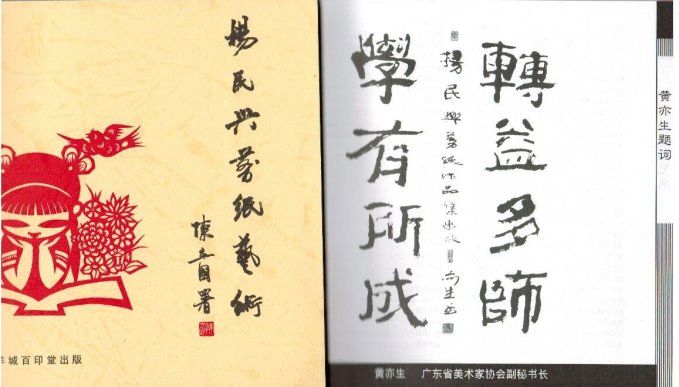 楊民兴剪紙藝術
羊城百印堂出版
轉益多師
學有所成
楊民興剪紙作品集出版
黄亦生题词
黄亦生 广东省美术家协会副秘书长